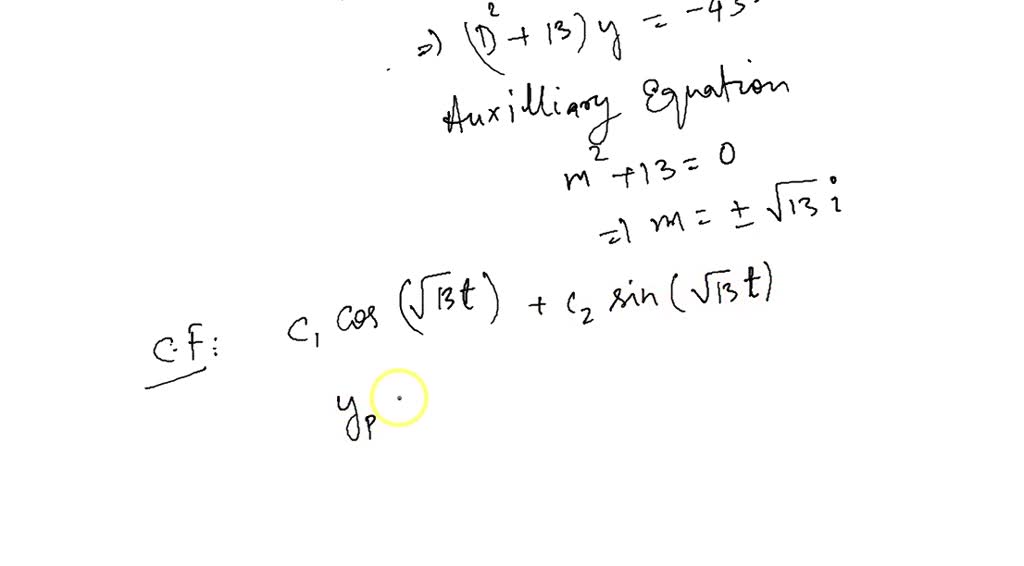 ⇒) (D² + 13) y = -45
Auxilliary Equation
m² + 13 = 0
⇒) m = ± √13 i
C.F: C₁ cos (√13t) + C₂ sin (√13t)
yₚ